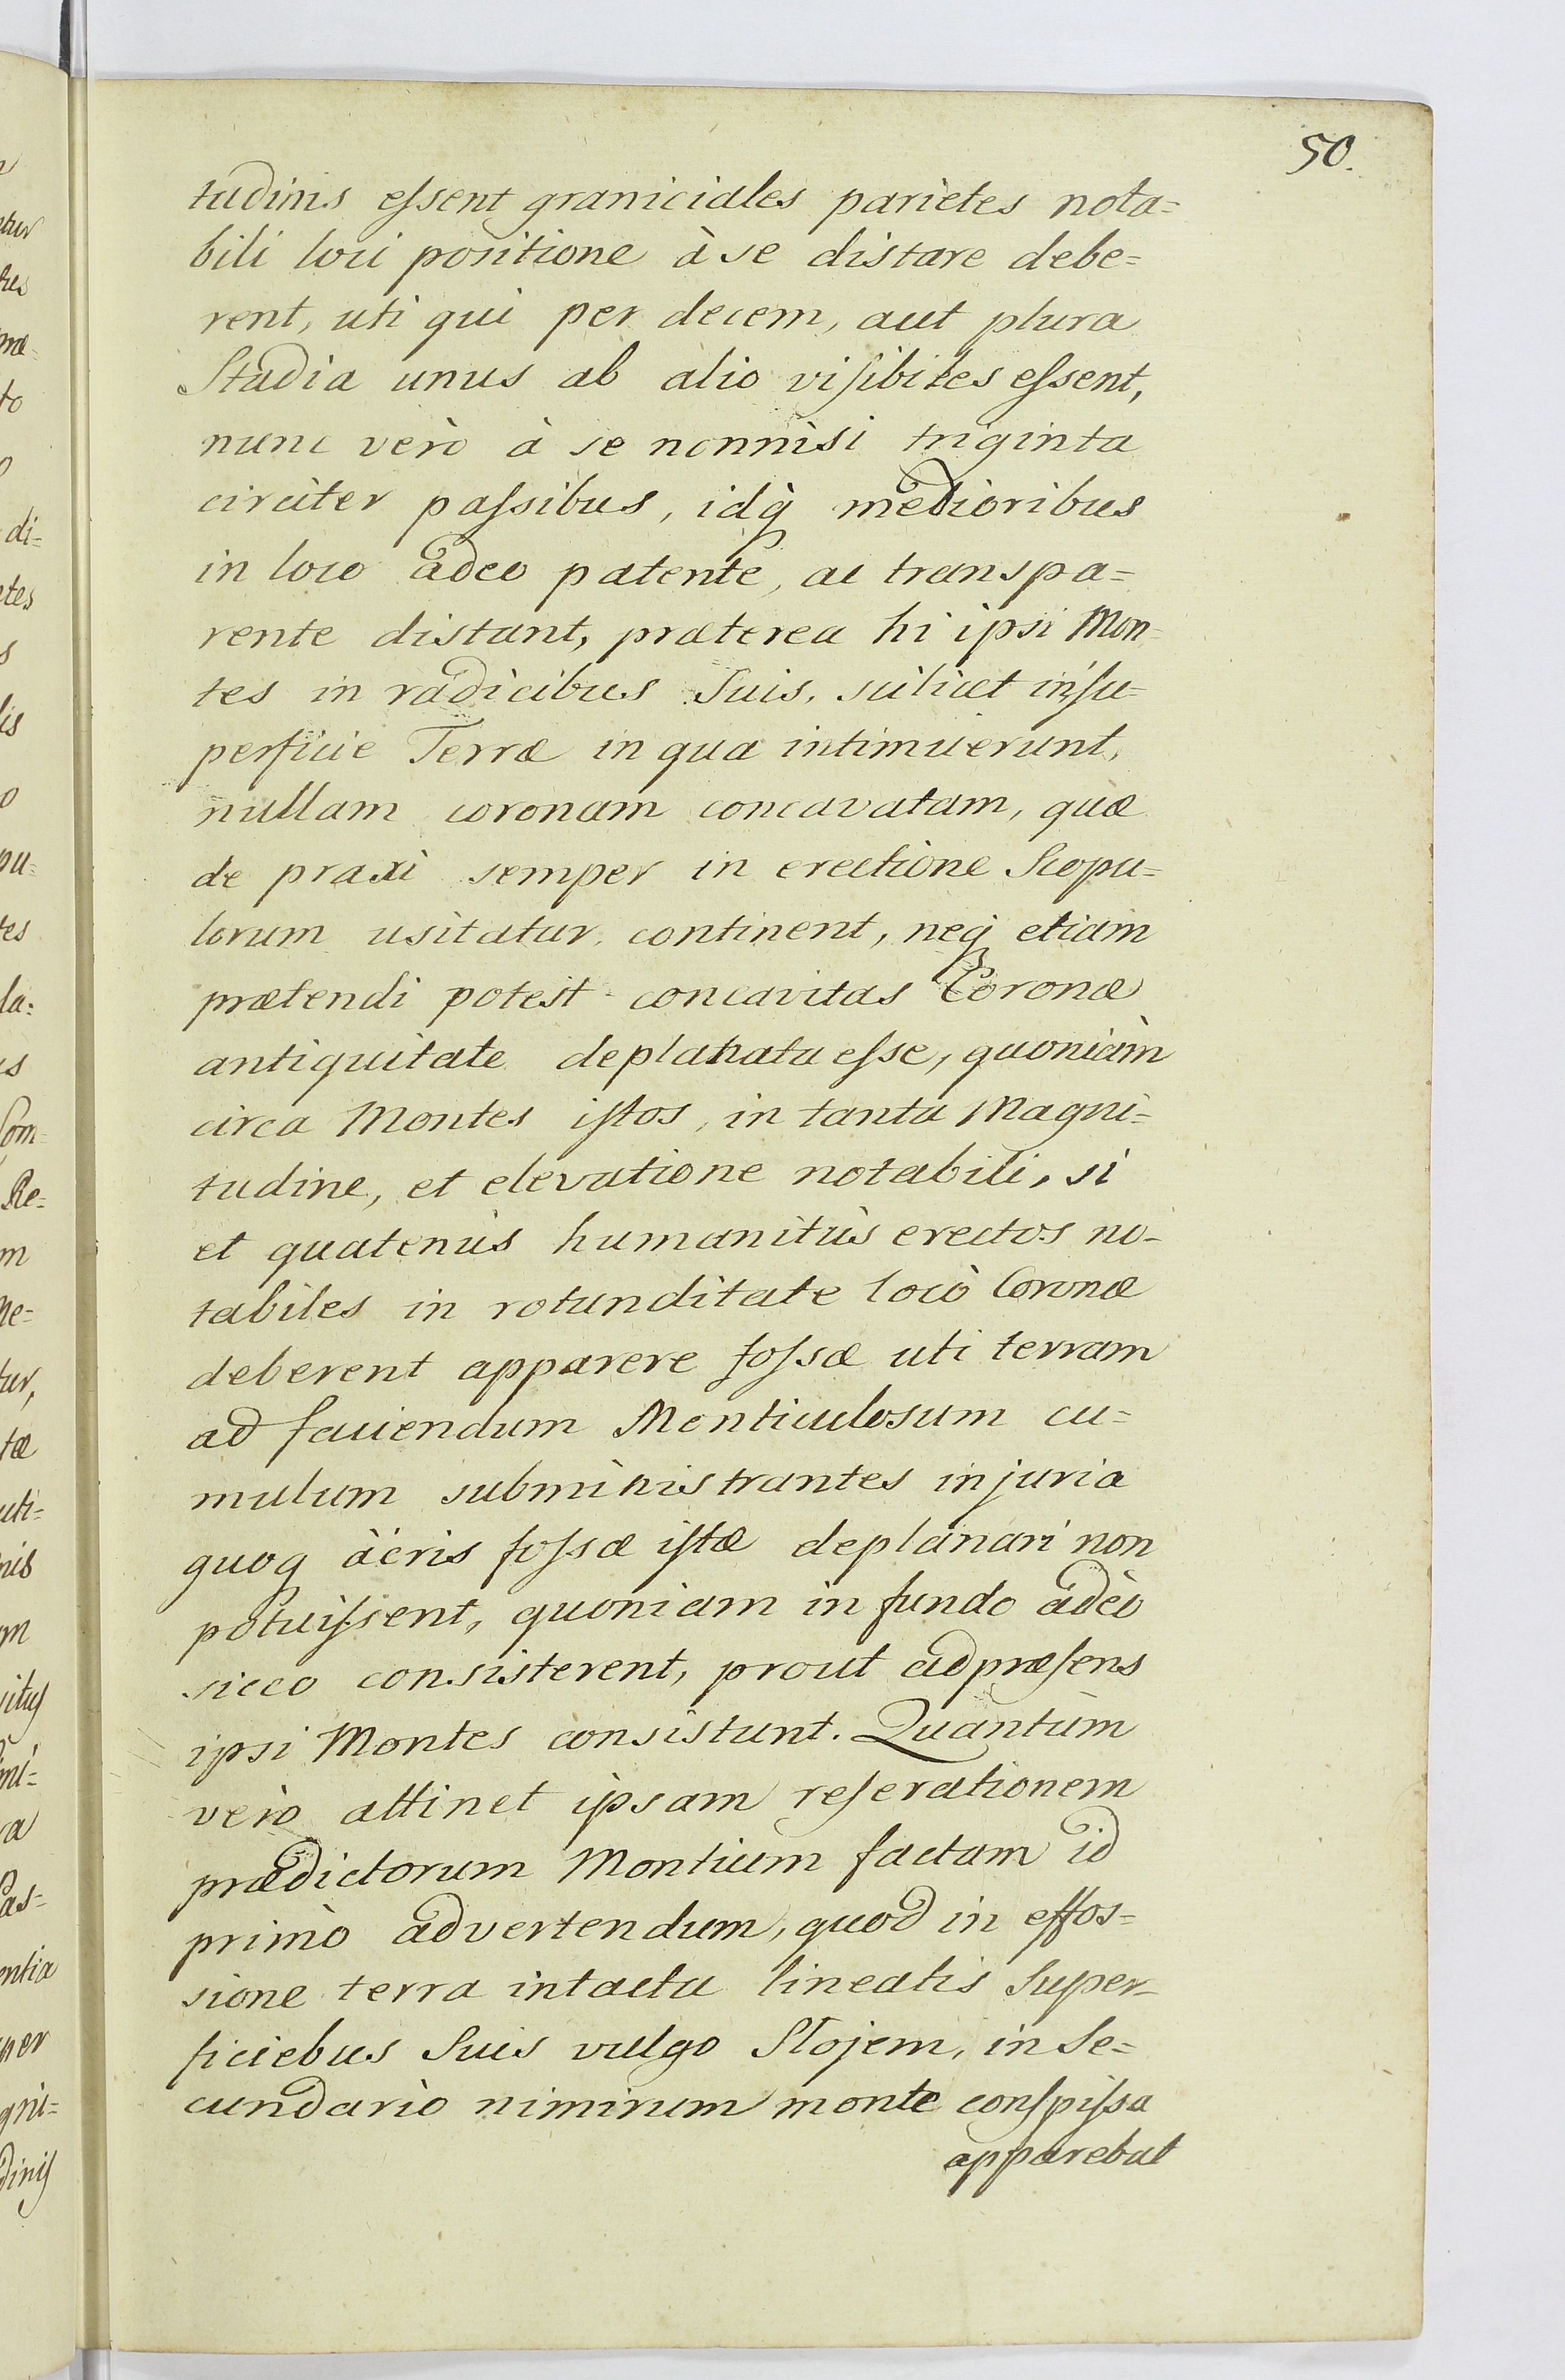 50.
tudinis eſsent graniciales parietes nota=
bili loci positione à se distare debe=
rent, uti qui per decem, aut plura
Stadia unus ab alio viſibiles eſsent,
nunc verò à se nonnisi triginta
circiter paſsibus, idq́ʒ mediòribus
in loco adeo patente, ac transpa=
rente distant, præterea hi ipsi Mon=
tes in radicibus Suis, scilicet inſu=
perficie Terræ in qua intimuerunt,
nullam coronam concavatam, quæ
de praxi semper in erectione Scopu=
lorum usitatur, continent, neqʒ etiam
prætendi potest concavitas Coronæ
antiquitate deplanata eſse, quoniàm
circa Montes iſtos, in tanta Magni=
tudine, et elevatione notabili, si
et quatenùs humanitùs erectos no=
tabiles in rotunditate locò Coronæ
deberent apparere foſsæ uti terram
ad faciendum Monticulosum cu=
mulum subministrantes injuria
quoqʒ àëris foſsæ iſtæ deplanari non
potuiſsent, quoniam in fundo adèo
sicco consisterent, prout adpræſens
ipsi Montes consistunt. Quantùm
verò attinet ipsam reſerationem
prædictorum Montium factam id
primò advertendum, quod in effos=
sione terra intacta lineatis Super=
ficiebus Suis vulgo Slojem, in Se=
cundario nimirum monte conſpiſsa
apparebat